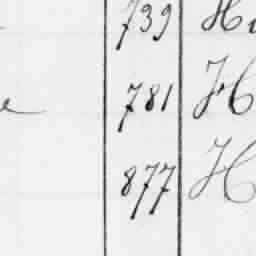 739 H
781 H
877 H